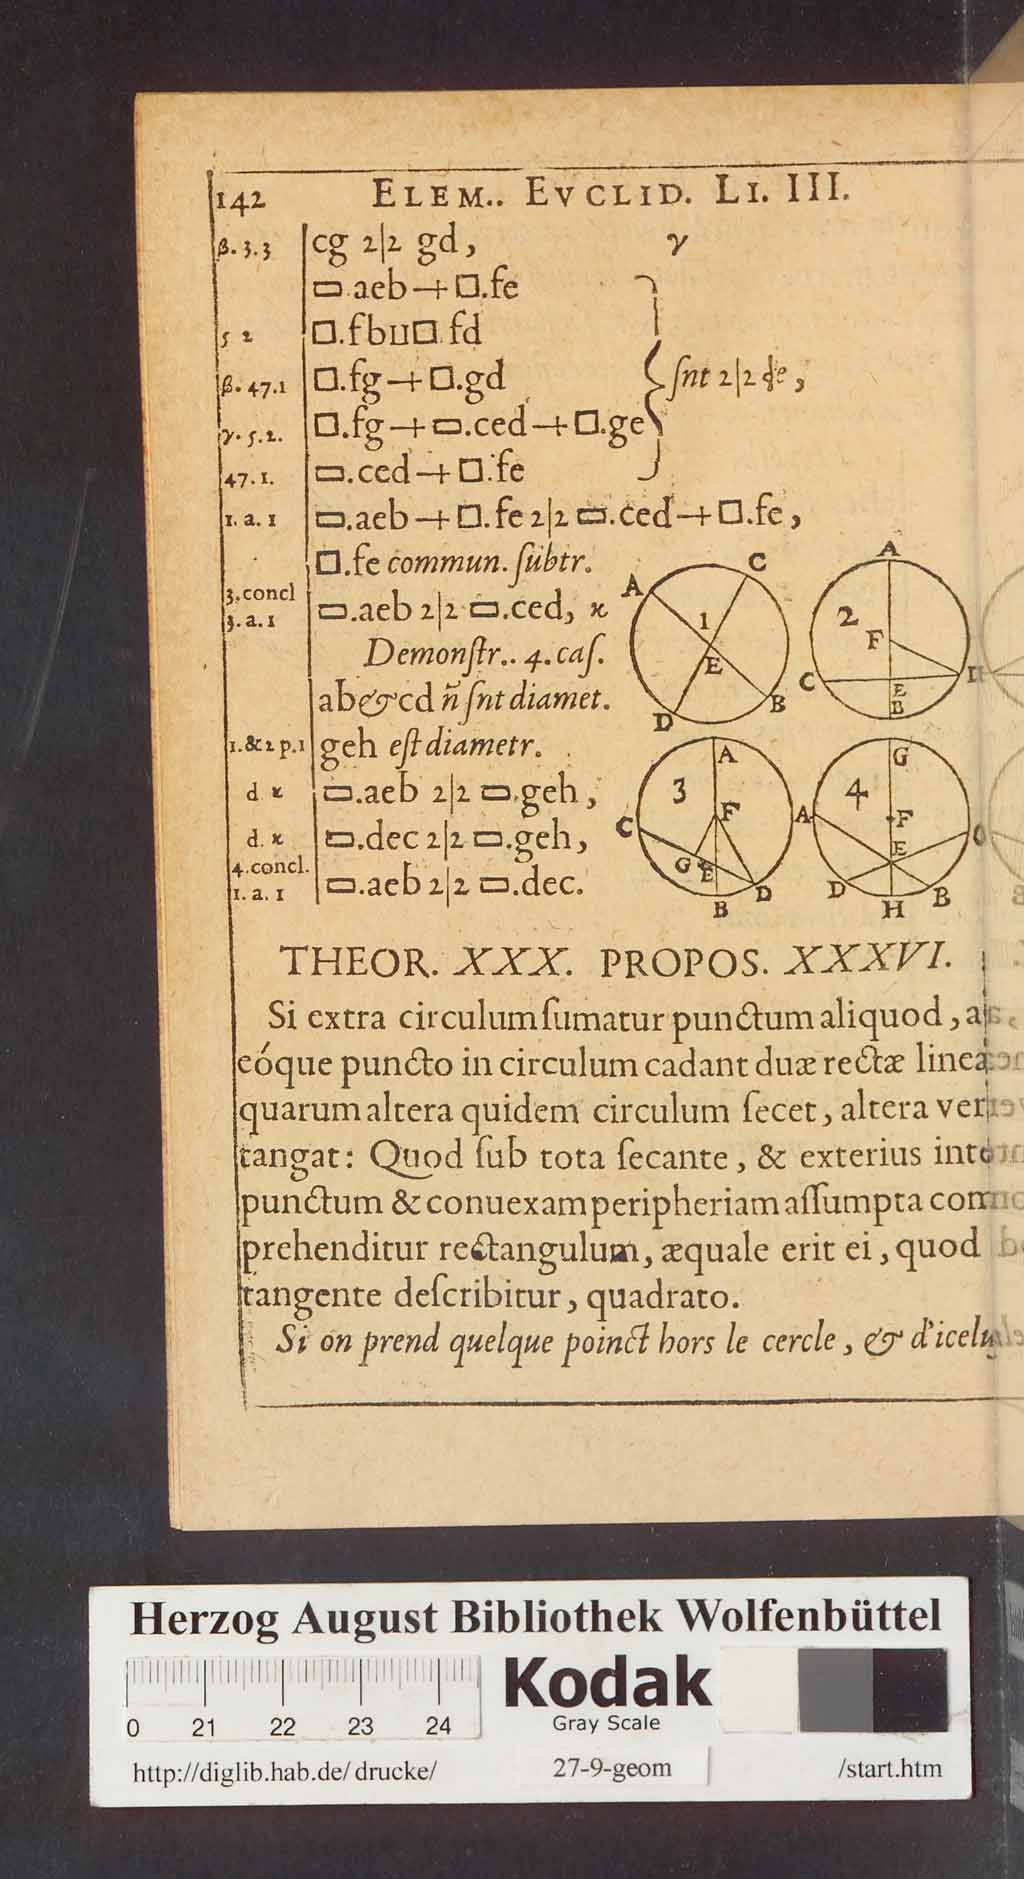 142 ELEM.. EVCLID. LI. III.
β. 3. 3 cg 2|2 gd, γ
▭.aeb + □.fe
5 2 □.fbu□.fd
β. 47.1 □.fg + □.gd ſnt 2|2 de,
γ. 5. 2. □.fg + ▭.ced + □.ge
47. 1. ▭.ced + □.fe
1. a. 1 ▭.aeb + □.fe 2|2 ▭.ced + □.fe,
□.fe commun. ſubtr.
3.concl
3. a. 1 ▭.aeb 2|2 ▭.ced, ϰ
Demonſtr.. 4. caſ.
ab & cd ñ ſnt diamet.
1. & 2 p.1 geh eſt diametr.
d ϰ ▭.aeb 2|2 ▭.geh,
d. ϰ ▭.dec 2|2 ▭.geh,
4.concl.
1. a. 1 ▭.aeb 2|2 ▭.dec.
A C 1 E D B
A 2 F C E B
A 3 F C G E D B
G 4 A F E D H B
THEOR. XXX. PROPOS. XXXVI.
Si extra circulum ſumatur punctum aliquod, a
eóque puncto in circulum cadant duæ rectæ lineæ
quarum altera quidem circulum ſecet, altera ver
tangat: Quod ſub tota ſecante, & exterius inte
punctum & conuexam peripheriam aſſumpta com
prehenditur rectangulum, æquale erit ei, quod
tangente deſcribitur, quadrato.
Si on prend quelque poinct hors le cercle, & d'icelu
Herzog August Bibliothek Wolfenbüttel
0 21 22 23 24
Kodak
Gray Scale
http://diglib.hab.de/drucke/ 27-9-geom /start.htm